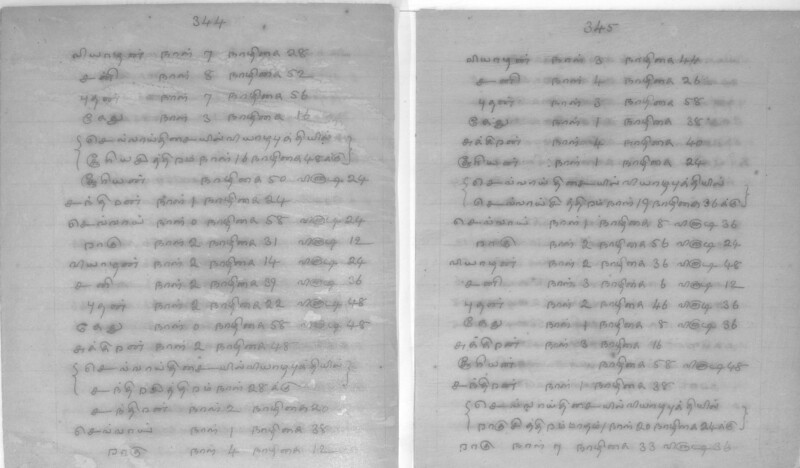 344
வியாழன் நாள் 7 நாழிகை 28
சனி நாள் 8 நாழிகை 52
புதன் நாள் 7 நாழிகை 56
கேது நாள் 3 நாழிகை 16
செவ்வாய்திசையில்வியாழபுத்தியில்
சூரியசித்திரம் நாள் 16 நாழிகை 48 க்கு
சூரியன் நாழிகை 50 விநாடி 24
சந்திரன் நாள் 1 நாழிகை 24
செவ்வாய் நாள் 0 நாழிகை 58 விநாடி 24
ராகு நாள் 2 நாழிகை 31 விநாடி 12
வியாழன் நாள் 2 நாழிகை 14 விநாடி 24
சனி நாள் 2 நாழிகை 39 விநாடி 36
புதன் நாள் 2 நாழிகை 22 விநாடி 48
கேது நாள் 0 நாழிகை 58 விநாடி 48
சுக்கிரன் நாள் 2 நாழிகை 48
செவ்வாய்திசையில்வியாழபுத்தியில்
சந்திரசித்திரம் நாள் 28 க்கு
சந்திரன் நாள் 2 நாழிகை 20
செவ்வாய் நாள் 1 நாழிகை 38
ராகு நாள் 4 நாழிகை 12
345
வியாழன் நாள் 3 நாழிகை 44
சனி நாள் 4 நாழிகை 26
புதன் நாள் 3 நாழிகை 58
கேது நாள் 1 நாழிகை 38
சுக்கிரன் நாள் 4 நாழிகை 40
சூரியன் நாள் 1 நாழிகை 24
செவ்வாய் திசையில் வியாழபுத்தியில்
செவ்வாய்சித்திரம் நாள் 19 நாழிகை 36 க்கு
செவ்வாய் நாள் 1 நாழிகை 8 விநாடி 36
ராகு நாள் 2 நாழிகை 56 விநாடி 24
வியாழன் நாள் 2 நாழிகை 36 விநாடி 48
சனி நாள் 3 நாழிகை 6 விநாடி 12
புதன் நாள் 2 நாழிகை 46 விநாடி 36
கேது நாள் 1 நாழிகை 8 விநாடி 36
சுக்கிரன் நாள் 3 நாழிகை 16
சூரியன் நாழிகை 58 விநாடி 48
சந்திரன் நாள் 1 நாழிகை 38
செவ்வாய்திசையில்வியாழபுத்தியில்
ராகுசித்திரம் மாதம் 1 நாள் 20 நாழிகை 24 க்கு
ராகு நாள் 7 நாழிகை 33 விநாடி 36